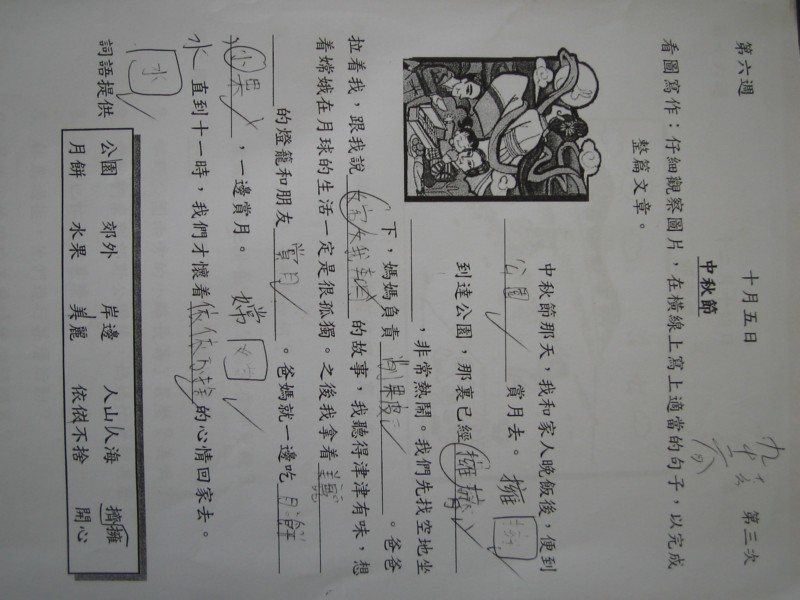 第六週 十月五日 第三次
中秋節
看圖寫作：仔細觀察圖片，在橫線上寫上適當的句子，以完成
整篇文章。
中秋節那天，我和家人晚飯後，便到
公園 賞月去。 擁
到達公園，那裏已經擁
，非常熱鬧。我們先找空地坐
下，媽媽負責 削果皮 。爸爸
拉着我，跟我說 的故事，我聽得津津有味，想
着嫦娥在月球的生活一定是很孤獨。之後我拿着美麗
的燈籠和朋友 賞月 。爸媽就一邊吃 月餅
果 ，一邊賞月。 嫦
水 直到十一時，我們才懷着依依不捨的心情回家去。
水
詞語提供
公園 郊外 岸邊 人山人海 擠擁
月餅 水果 美麗 依依不捨 開心